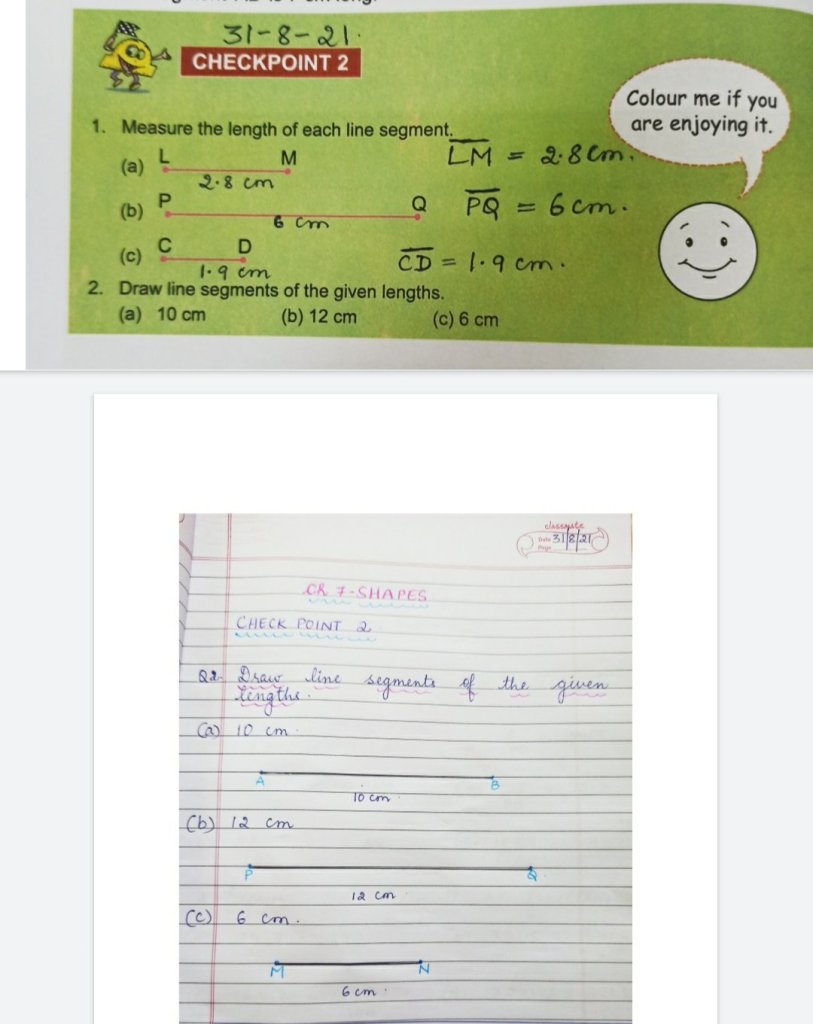 31-8-21.
CHECKPOINT 2
Colour me if you
are enjoying it.
1. Measure the length of each line segment.
(a) L M
2.8 cm
LM = 2.8 cm.
(b) P Q
6 cm
PQ = 6 cm.
(c) C D
1.9 cm
CD = 1.9 cm.
2. Draw line segments of the given lengths.
(a) 10 cm (b) 12 cm (c) 6 cm
classmate
Date 31/8/21
Page
CH 7-SHAPES
CHECK POINT 2
Q2. Draw line segments of the given
lengths.
(a) 10 cm.
A B
10 cm.
(b) 12 cm
P Q
12 cm
(c) 6 cm.
M N
6 cm.